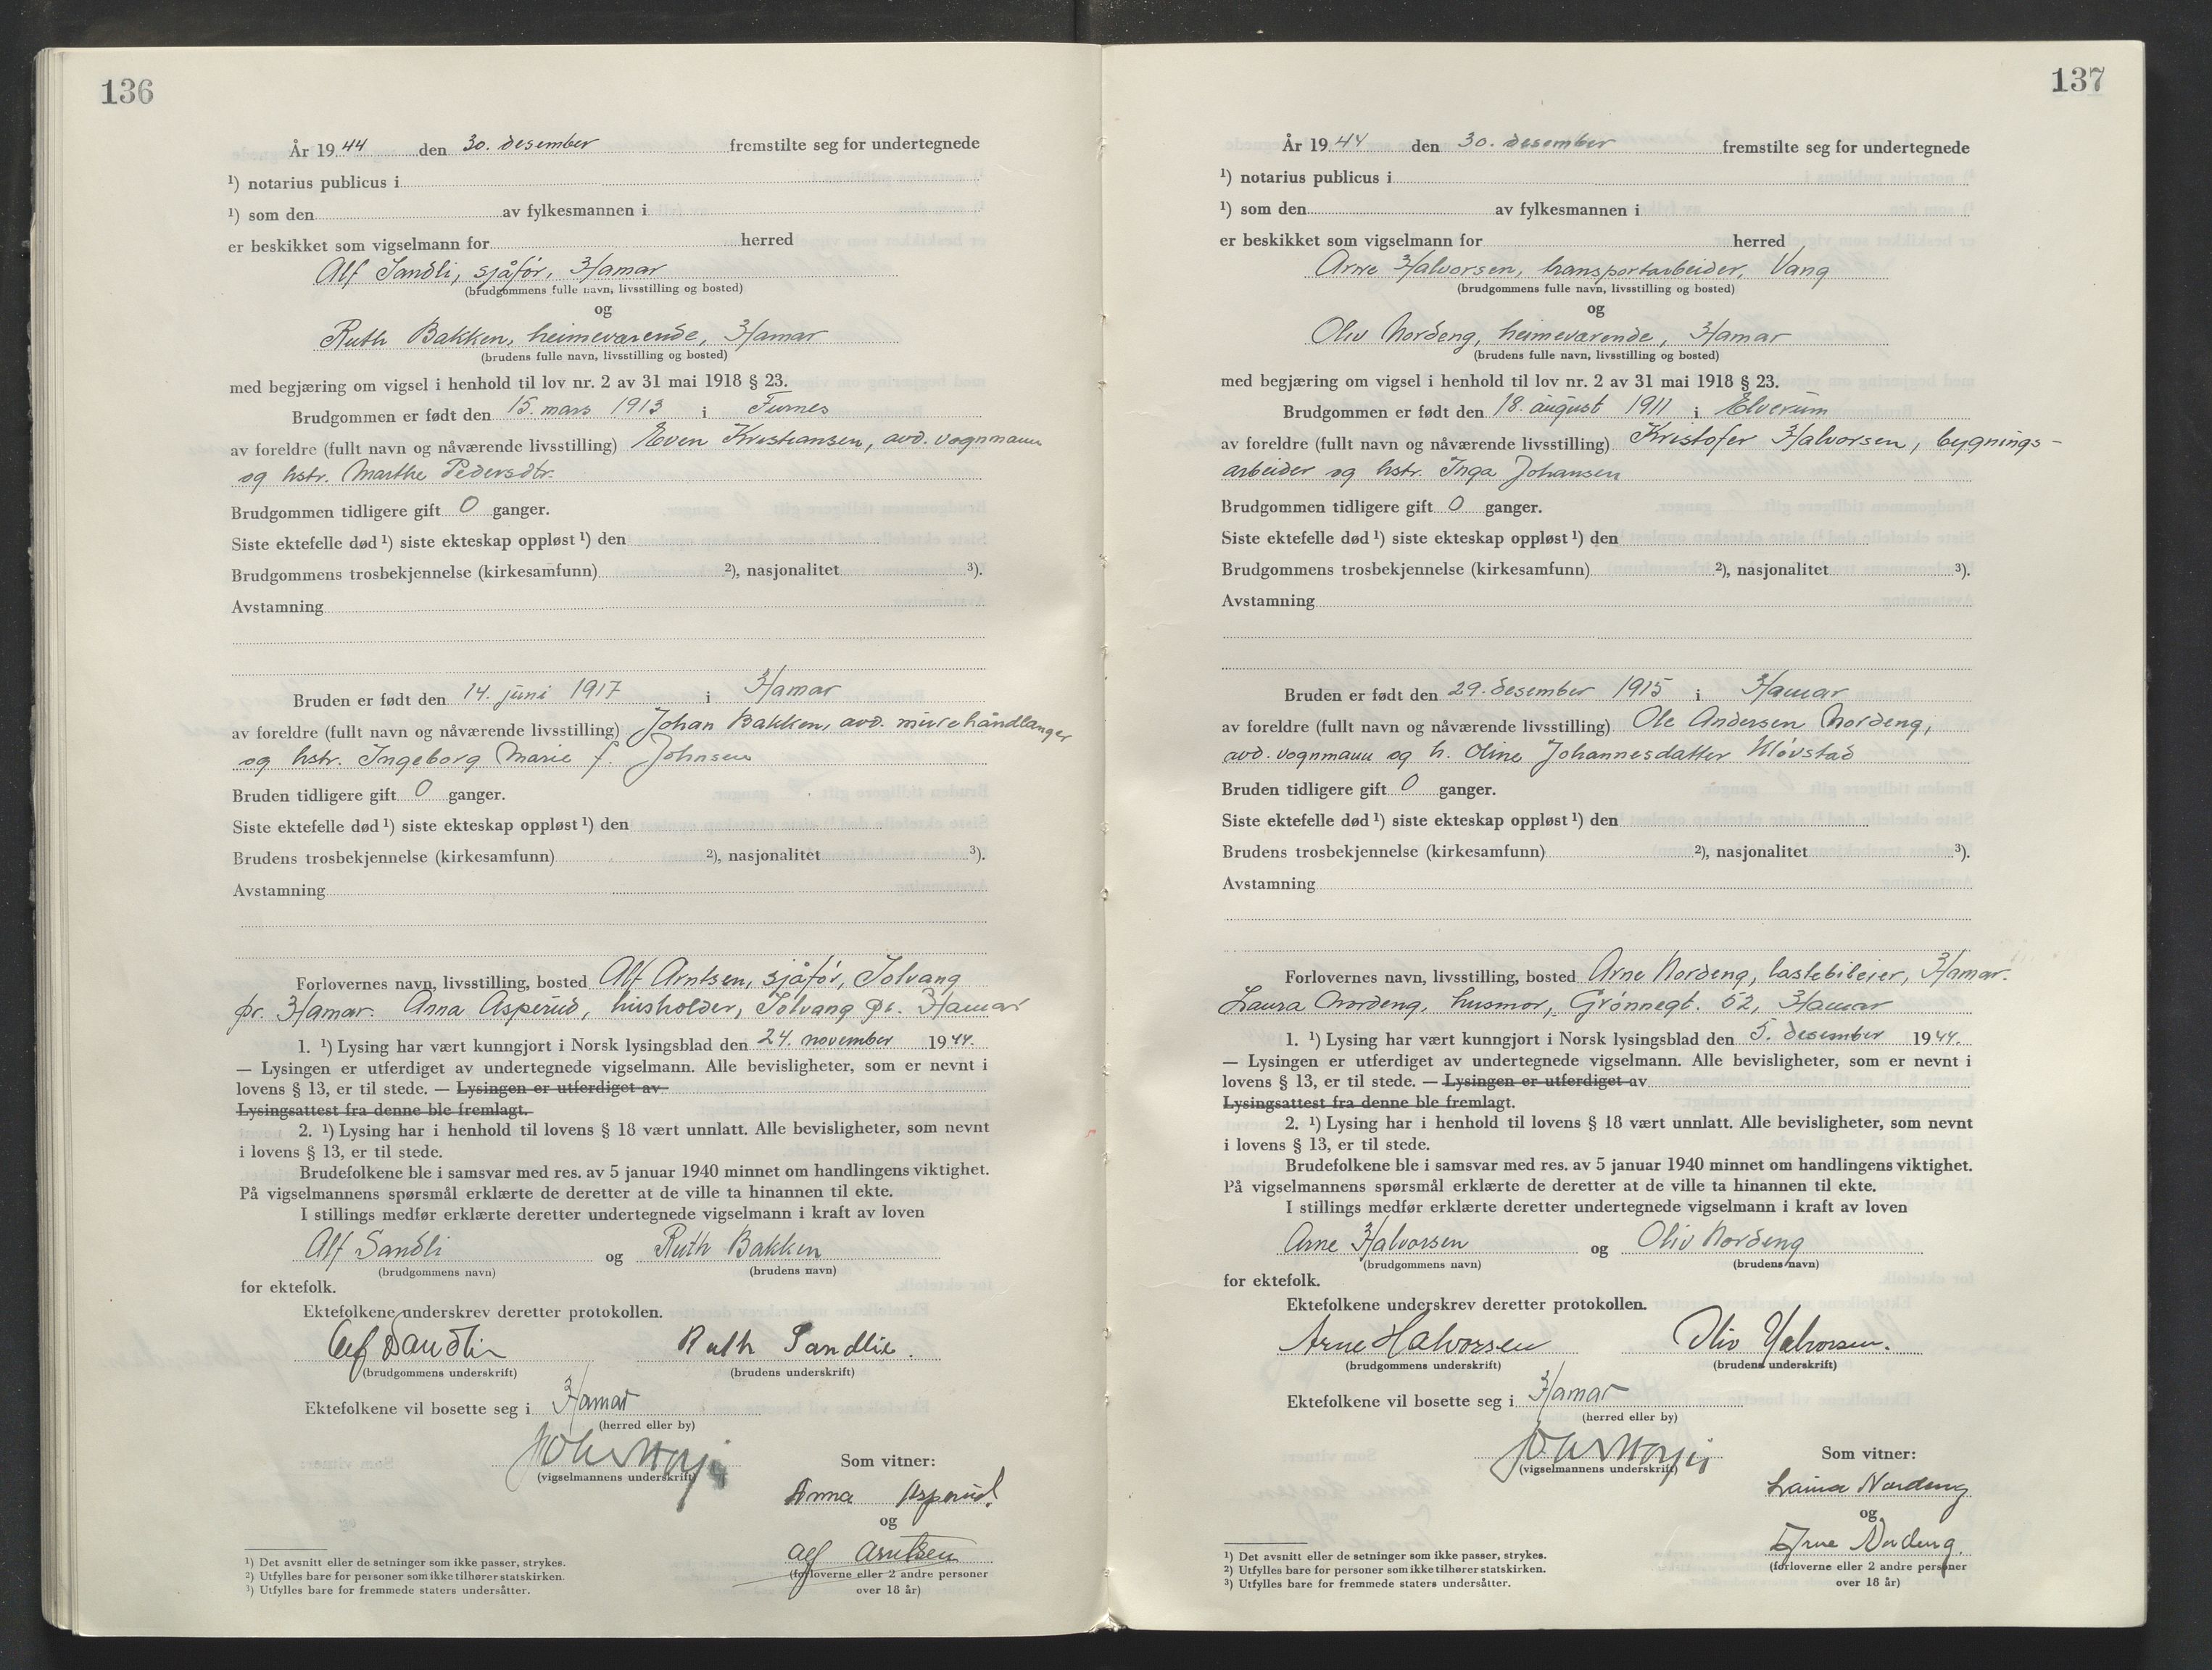 136
År 19 44 den 30. desember fremstilte seg for undertegnede
¹) notarius publicus i
¹) som den av fylkesmannen i
er beskikket som vigselmann for herred
Alf Sandli, sjåfør, Hamar
(brudgommens fulle navn, livsstilling og bosted)
og
Ruth Bakken, heimeværende, Hamar
(brudens fulle navn, livsstilling og bosted)
med begjæring om vigsel i henhold til lov nr. 2 av 31 mai 1918 § 23.
Brudgommen er født den 15. mars 1913 i Furnes
av foreldre (fullt navn og nåværende livsstilling) Even Kristiansen, avd. vognmann
og hstr. Marthe Pedersdtr.
Brudgommen tidligere gift 0 ganger.
Siste ektefelle død ¹) siste ekteskap oppløst ¹) den
Brudgommens trosbekjennelse (kirkesamfunn) ²), nasjonalitet ³).
Avstamning
Bruden er født den 14. juni 1917 i Hamar
av foreldre (fullt navn og nåværende livsstilling) Johan Bakken, avd. murerhåndlanger
og hstr. Ingeborg Marie f. Johnsen
Bruden tidligere gift 0 ganger.
Siste ektefelle død ¹) siste ekteskap oppløst ¹) den
Brudens trosbekjennelse (kirkesamfunn) ²), nasjonalitet ³).
Avstamning
Forlovernes navn, livsstilling, bosted Alf Arntsen, sjåfør, Solvang
pr. Hamar. Anna Asperud, husholder, Solvang pr. Hamar
1. ¹) Lysing har vært kunngjort i Norsk lysingsblad den 24. november 19 44.
— Lysingen er utferdiget av undertegnede vigselmann. Alle bevisligheter, som er nevnt i
lovens § 13, er til stede. — Lysingen er utferdiget av
Lysingsattest fra denne ble fremlagt.
2. ¹) Lysing har i henhold til lovens § 18 vært unnlatt. Alle bevisligheter, som nevnt
i lovens § 13, er til stede.
Brudefolkene ble i samsvar med res. av 5 januar 1940 minnet om handlingens viktighet.
På vigselmannens spørsmål erklærte de deretter at de ville ta hinannen til ekte.
I stillings medfør erklærte deretter undertegnede vigselmann i kraft av loven
Alf Sandli og Ruth Bakken
(brudgommens navn) (brudens navn)
for ektefolk.
Ektefolkene underskrev deretter protokollen.
Alf Sandli Ruth Sandlie.
(brudgommens underskrift) (brudens underskrift)
Ektefolkene vil bosette seg i Hamar
(herred eller by)
(vigselmannens underskrift)
Som vitner:
Anna Asperud.
og
Alf Arntsen
(forloverne eller 2 andre personer
over 18 år)
¹) Det avsnitt eller de setninger som ikke passer, strykes.
²) Utfylles bare for personer som ikke tilhører statskirken.
³) Utfylles bare for fremmede staters undersåtter.
137
År 19 44 den 30. desember fremstilte seg for undertegnede
¹) notarius publicus i
¹) som den av fylkesmannen i
er beskikket som vigselmann for herred
Arne Halvorsen, transportarbeider, Vang
(brudgommens fulle navn, livsstilling og bosted)
og
Oliv Nordeng, heimeværende, Hamar
(brudens fulle navn, livsstilling og bosted)
med begjæring om vigsel i henhold til lov nr. 2 av 31 mai 1918 § 23.
Brudgommen er født den 18. august 1911 i Elverum
av foreldre (fullt navn og nåværende livsstilling) Kristofer Halvorsen, bygnings-
arbeider og hstr. Inga Johansen
Brudgommen tidligere gift 0 ganger.
Siste ektefelle død ¹) siste ekteskap oppløst ¹) den
Brudgommens trosbekjennelse (kirkesamfunn) ²), nasjonalitet ³).
Avstamning
Bruden er født den 29. desember 1915 i Hamar
av foreldre (fullt navn og nåværende livsstilling) Ole Andersen Nordeng,
avd. vognmann og h. Oline Johannesdatter Kløvstad
Bruden tidligere gift 0 ganger.
Siste ektefelle død ¹) siste ekteskap oppløst ¹) den
Brudens trosbekjennelse (kirkesamfunn) ²), nasjonalitet ³).
Avstamning
Forlovernes navn, livsstilling, bosted Arne Nordeng, lastebileier, Hamar.
Laura Nordeng, husmor, Grønnegt. 52, Hamar
1. ¹) Lysing har vært kunngjort i Norsk lysingsblad den 5. desember 19 44.
— Lysingen er utferdiget av undertegnede vigselmann. Alle bevisligheter, som er nevnt i
lovens § 13, er til stede. — Lysingen er utferdiget av
Lysingsattest fra denne ble fremlagt.
2. ¹) Lysing har i henhold til lovens § 18 vært unnlatt. Alle bevisligheter, som nevnt
i lovens § 13, er til stede.
Brudefolkene ble i samsvar med res. av 5 januar 1940 minnet om handlingens viktighet.
På vigselmannens spørsmål erklærte de deretter at de ville ta hinannen til ekte.
I stillings medfør erklærte deretter undertegnede vigselmann i kraft av loven
Arne Halvorsen og Oliv Nordeng
(brudgommens navn) (brudens navn)
for ektefolk.
Ektefolkene underskrev deretter protokollen.
Arne Halvorsen Oliv Halvorsen.
(brudgommens underskrift) (brudens underskrift)
Ektefolkene vil bosette seg i Hamar
(herred eller by)
(vigselmannens underskrift)
Som vitner:
Laura Nordeng
og
Arne Nordeng.
(forloverne eller 2 andre personer
over 18 år)
¹) Det avsnitt eller de setninger som ikke passer, strykes.
²) Utfylles bare for personer som ikke tilhører statskirken.
³) Utfylles bare for fremmede staters undersåtter.